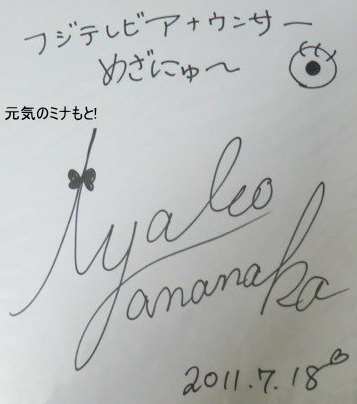 フジテレビアナウンサー
めざにゅ〜
元気のミナもと!
Ayako
Yananaka
2011.7.18